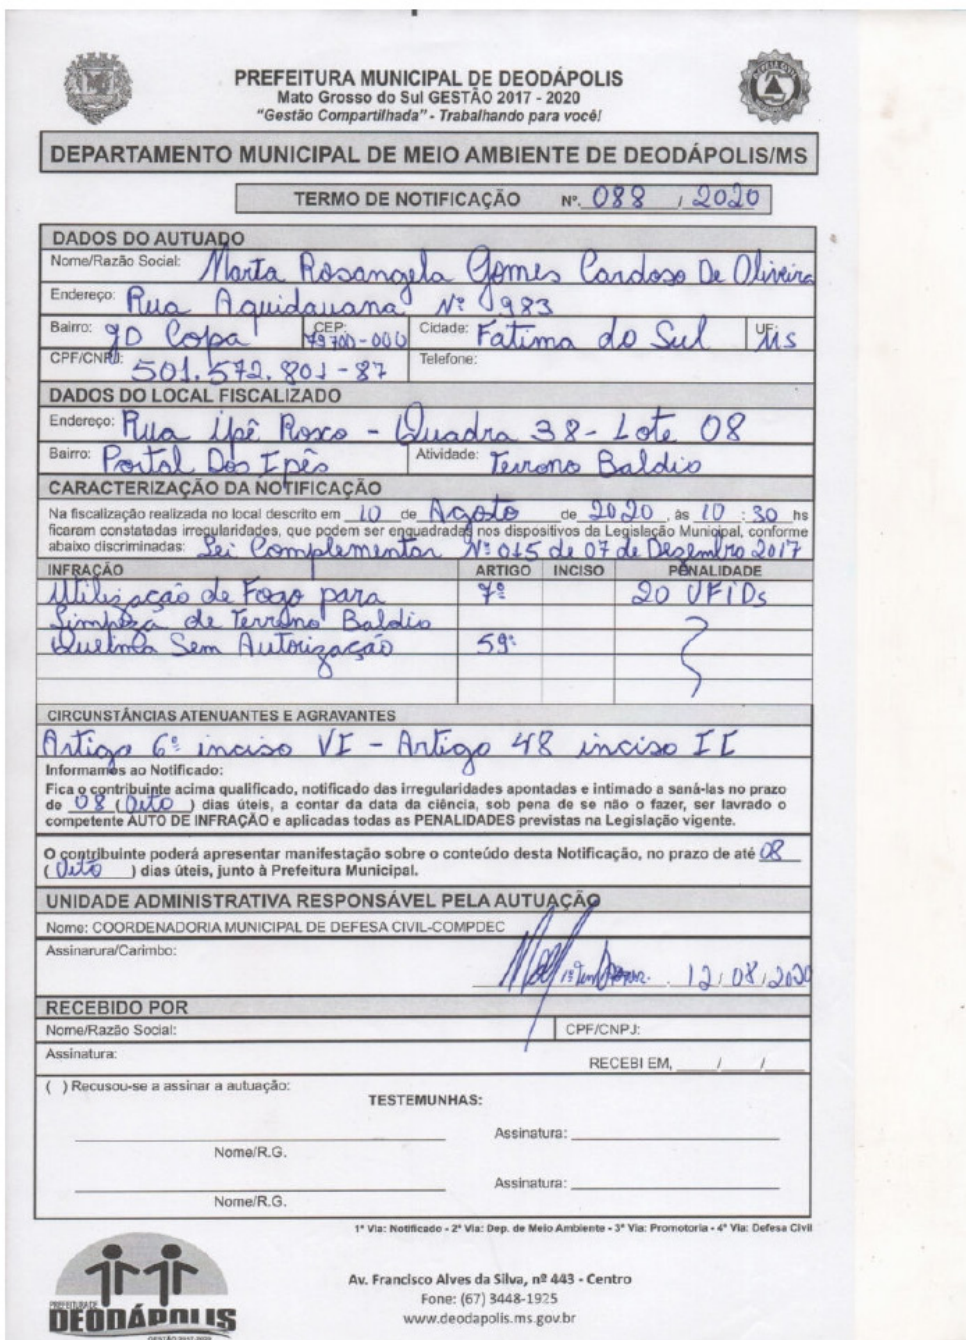 PREFEITURA MUNICIPAL DE DEODÁPOLIS
Mato Grosso do Sul GESTÃO 2017 - 2020
"Gestão Compartilhada" - Trabalhando para você!
DEPARTAMENTO MUNICIPAL DE MEIO AMBIENTE DE DEODÁPOLIS/MS
TERMO DE NOTIFICAÇÃO Nº. 088 / 2020
DADOS DO AUTUADO
Nome/Razão Social: Marta Rosangela Gomes Cardoso De Oliveira
Endereço: Rua Aquidauana Nº 983
Bairro: JD Copa CEP: 79700-000 Cidade: Fatima do Sul UF: MS
CPF/CNPJ: 501.572.801-87 Telefone:
DADOS DO LOCAL FISCALIZADO
Endereço: Rua ipê Roxo - Quadra 38- Lote 08
Bairro: Portal Dos Ipês Atividade: Terreno Baldio
CARACTERIZAÇÃO DA NOTIFICAÇÃO
Na fiscalização realizada no local descrito em 10 de Agosto de 2020, às 10 : 30 hs
ficaram constatadas irregularidades, que podem ser enquadradas nos dispositivos da Legislação Municipal, conforme
abaixo discriminadas: Lei Complementar Nº 015 de 07 de Dezembro 2017
INFRAÇÃO ARTIGO INCISO PENALIDADE
Utilização de Fogo para 7º 20 UFIDs
Limpeza de Terreno Baldio
Queima Sem Autorização 59º
CIRCUNSTÂNCIAS ATENUANTES E AGRAVANTES
Artigo 6º inciso VI - Artigo 48 inciso II
Informamos ao Notificado:
Fica o contribuinte acima qualificado, notificado das irregularidades apontadas e intimado a saná-las no prazo
de 08 ( Oito ) dias úteis, a contar da data da ciência, sob pena de se não o fazer, ser lavrado o
competente AUTO DE INFRAÇÃO e aplicadas todas as PENALIDADES previstas na Legislação vigente.
O contribuinte poderá apresentar manifestação sobre o conteúdo desta Notificação, no prazo de até 08
( Oito ) dias úteis, junto à Prefeitura Municipal.
UNIDADE ADMINISTRATIVA RESPONSÁVEL PELA AUTUAÇÃO
Nome: COORDENADORIA MUNICIPAL DE DEFESA CIVIL-COMPDEC
Assinarura/Carimbo:
12/08/2020
RECEBIDO POR
Nome/Razão Social: CPF/CNPJ:
Assinatura: RECEBI EM, ____/____/____
( ) Recusou-se a assinar a autuação:
TESTEMUNHAS:
Assinatura:
Nome/R.G.
Assinatura:
Nome/R.G.
1ª Via: Notificado - 2ª Via: Dep. de Meio Ambiente - 3ª Via: Promotoria - 4ª Via: Defesa Civil
PREFEITURA DE
DEODÁPOLIS
GESTÃO 2017-2020
Av. Francisco Alves da Silva, nº 443 - Centro
Fone: (67) 3448-1925
www.deodapolis.ms.gov.br